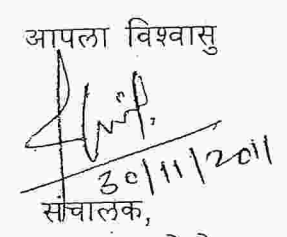 आपला विश्वासु
30/11/2011
संचालक,